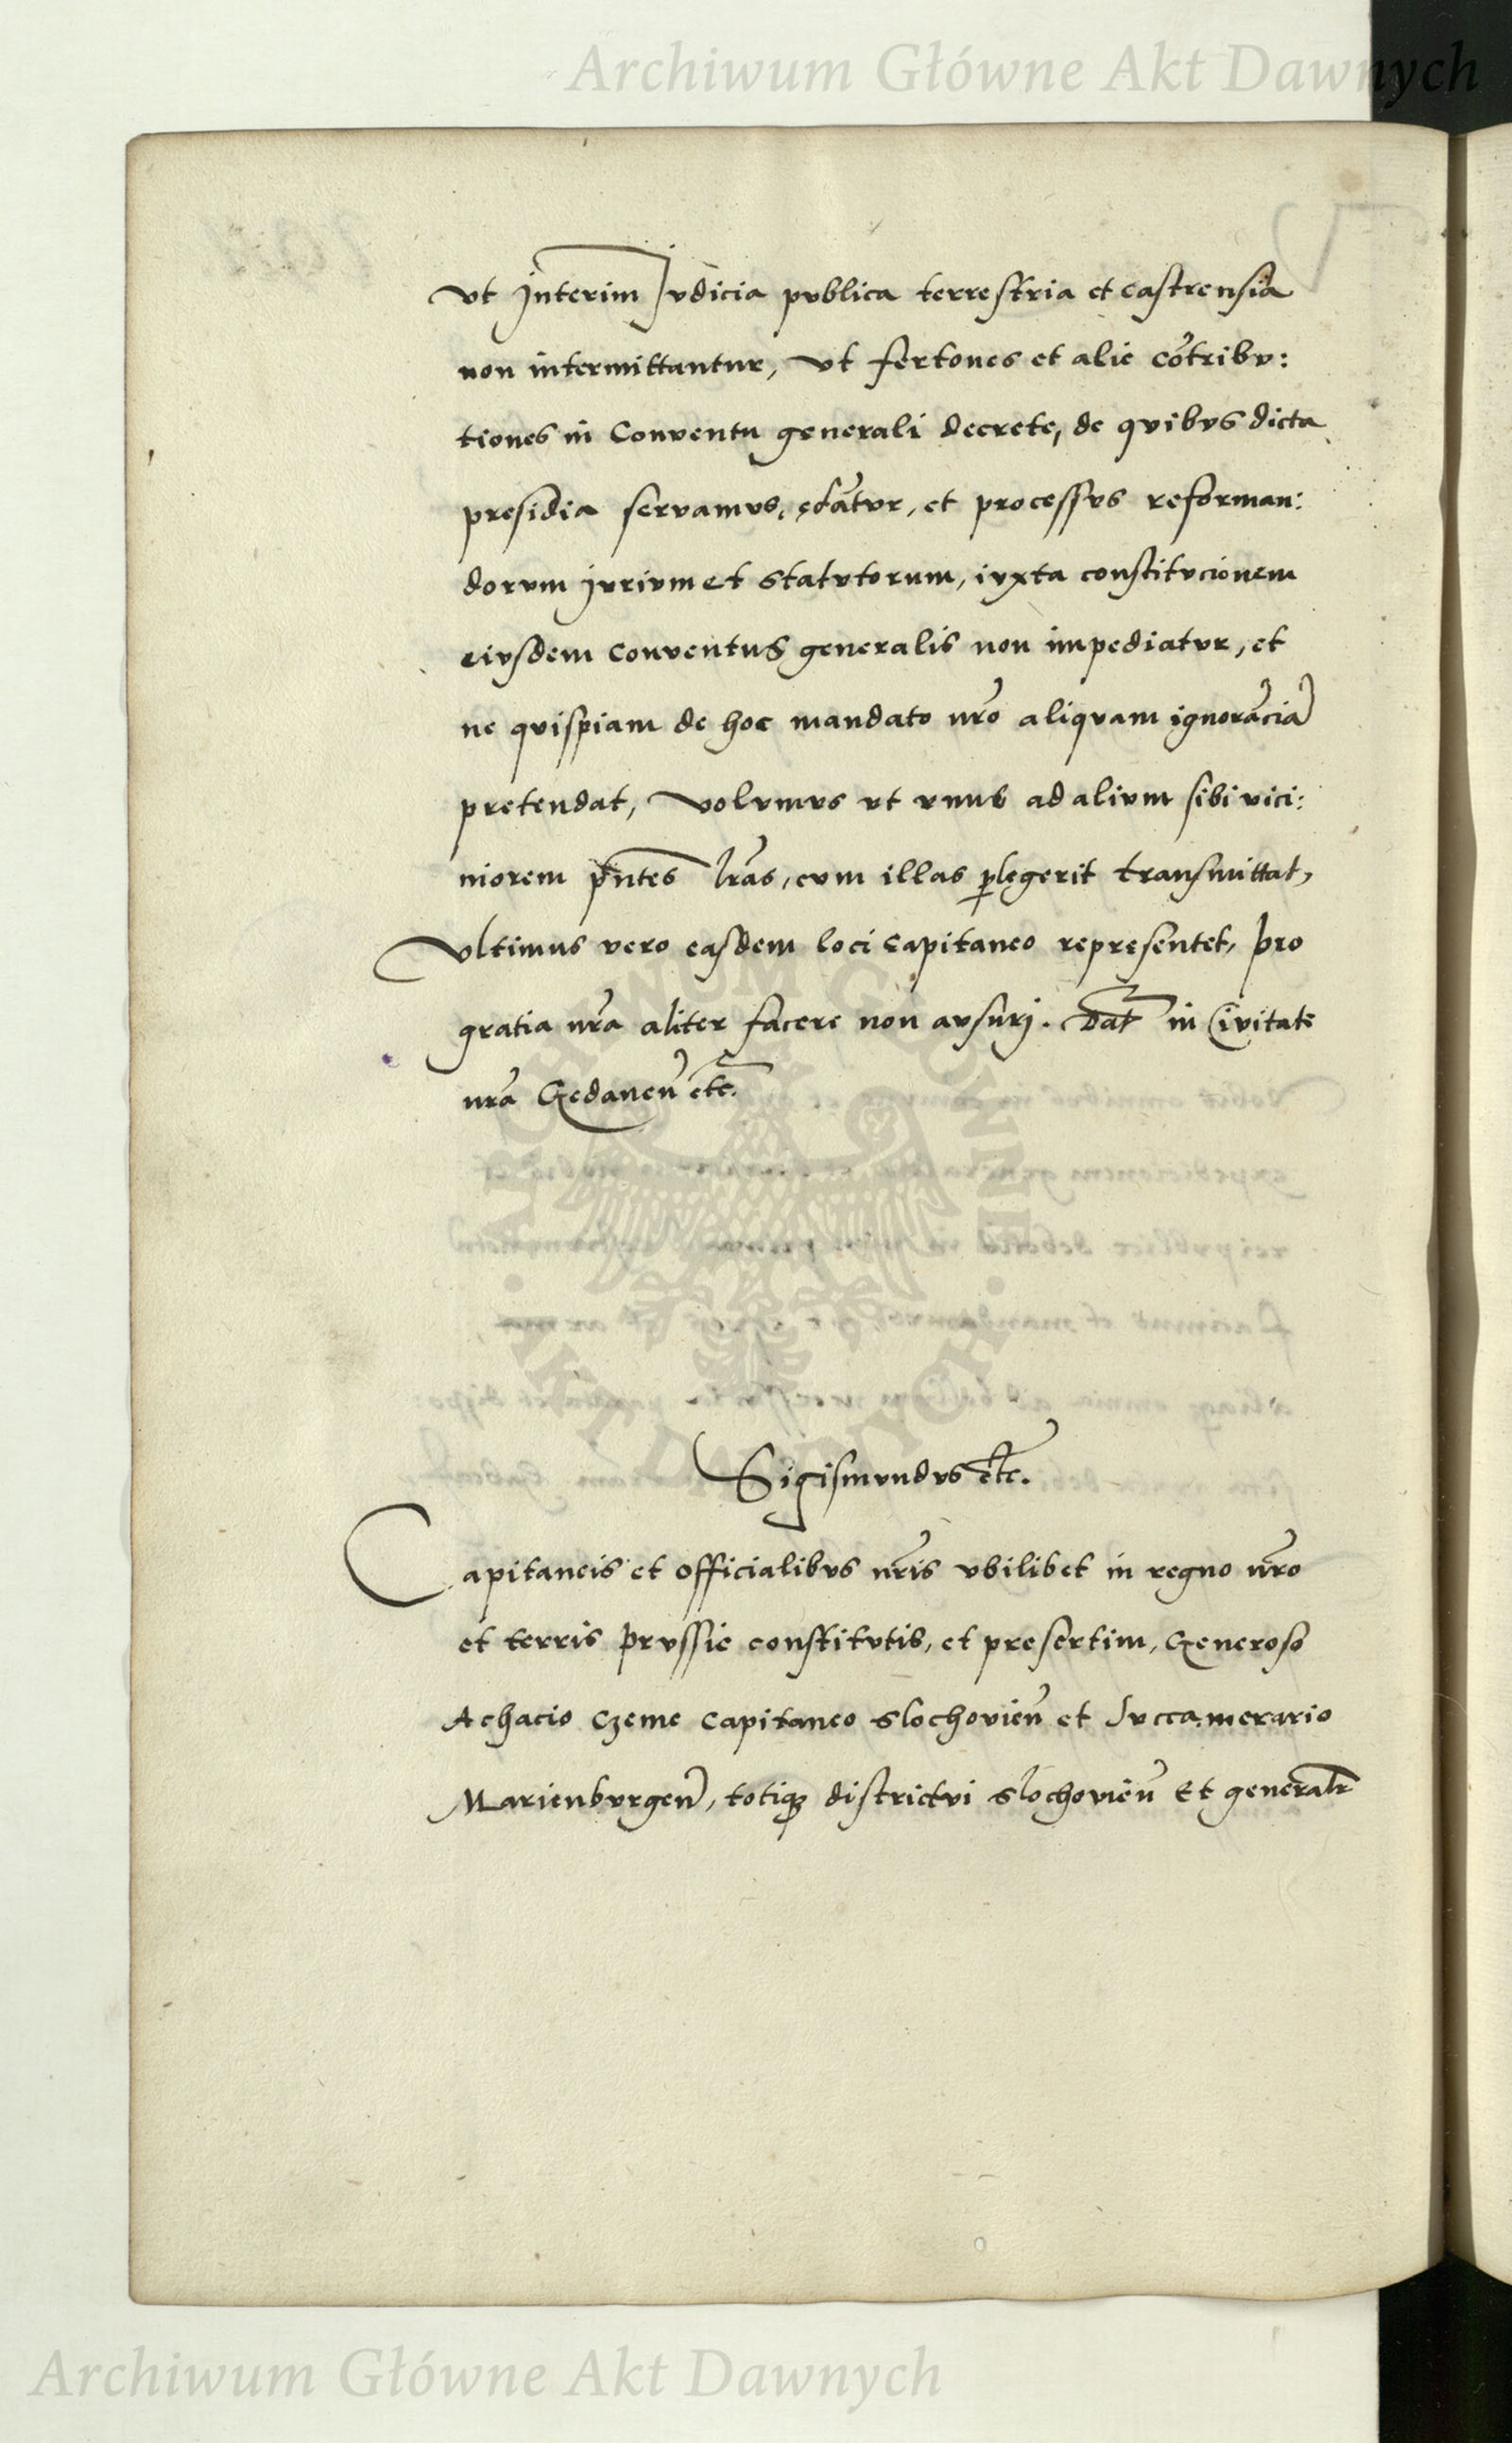 Archiwum Główne Akt Dawnych
vt Interim Judicia pvblica terrestria et castrensia
non intermittantur, vt fertones et alie cõtribv:
tiones in Conventu generali decrete, de qvibvs dicta
presidia servamvs, edãtvr, et processvs reforman:
dorvm jvrivm et statvtorum, ivxta constitvcionem
eivsdem conventus generalis non impediatvr, et
ne qvispiam de hoc mandato nr̃o aliqvam ignorãciã
pretendat, volvmvs vt vnus ad alivm sibi vici:
niorem p̃ntes l̃ras, cvm illas ꝑlegerit transmittat,
Vltimus vero easdem loci capitaneo representet, pro
gratia nr̃a aliter facere non avsurj. Dat̃ in Civitate
nr̃a Gedaneñ etc̃.
ARCHIWUM GŁÓWNE
AKT DAWNYCH
Sigismvndvs etc̃.
Capitaneis et officialibvs nr̃is vbilibet in regno nr̃o
et terris prvssie constitvtis, et presertim, Generoso
Achacio Czeme capitaneo Slochovieñ et Svccamerario
Marienbvrgeñ, totiqꝫ districtvi Slochovieñ Et generalr̃
Archiwum Główne Akt Dawnych